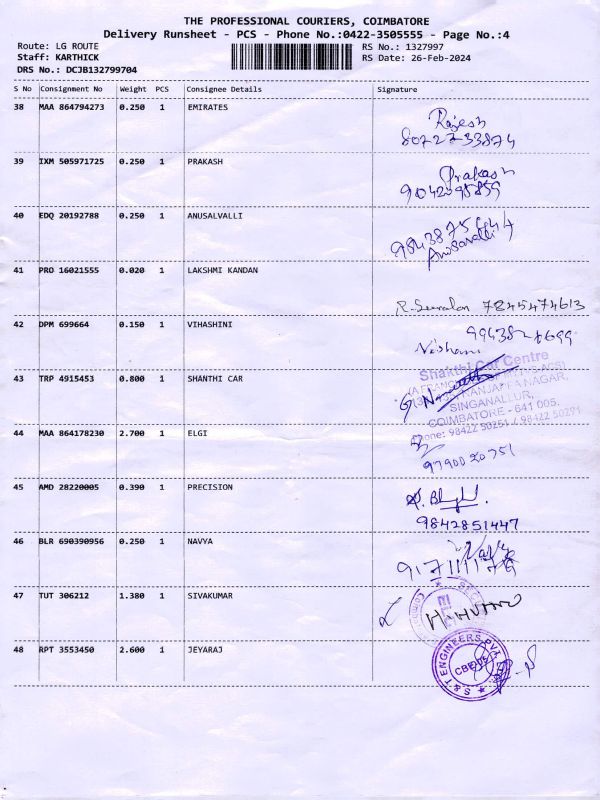 THE PROFESSIONAL COURIERS, COIMBATORE
Delivery Runsheet - PCS - Phone No.:0422-3505555 - Page No.:4
Route: LG ROUTE RS No.: 1327997
Staff: KARTHICK RS Date: 26-Feb-2024
DRS No.: DCJB132799704
S No Consignment No Weight PCS Consignee Details Signature
38 MAA 864794273 0.250 1 EMIRATES
Rajesh
8072733874
39 IXM 505971725 0.250 1 PRAKASH
Prakash
40 EDQ 20192788 0.250 1 ANUSALVALLI
Anusavalli
41 PRO 16021555 0.020 1 LAKSHMI KANDAN
7845474613
42 DPM 699664 0.150 1 VIHASHINI
43 TRP 4915453 0.800 1 SHANTHI CAR
Shakthi Car Centre
SINGANALLUR,
COIMBATORE - 641 005.
Phone: 98422 50251 / 98422 50271
44 MAA 864178230 2.700 1 ELGI
9790020751
45 AMD 28220005 0.390 1 PRECISION
9842851447
46 BLR 690390956 0.250 1 NAVYA
47 TUT 306212 1.380 1 SIVAKUMAR
48 RPT 3553450 2.600 1 JEYARAJ
S & T ENGINEERS PVT LTD